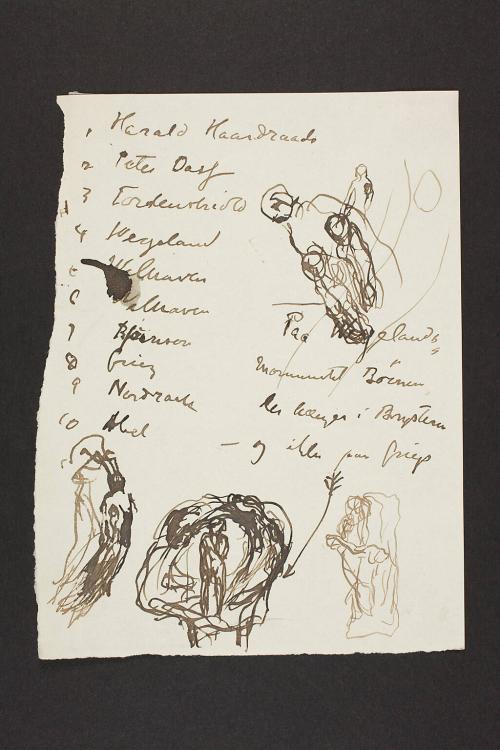 1 Harald Haardraade
2 Peter Dass
3 Tordenskiold
4 Wergeland
5 Welhaven
6 Welhaven
7 Bjørnson
8 Grieg
9 Nordraak
10 Abel
Paa Wergelands
Monumentet Börnene
i
– og ikke paa Griegs